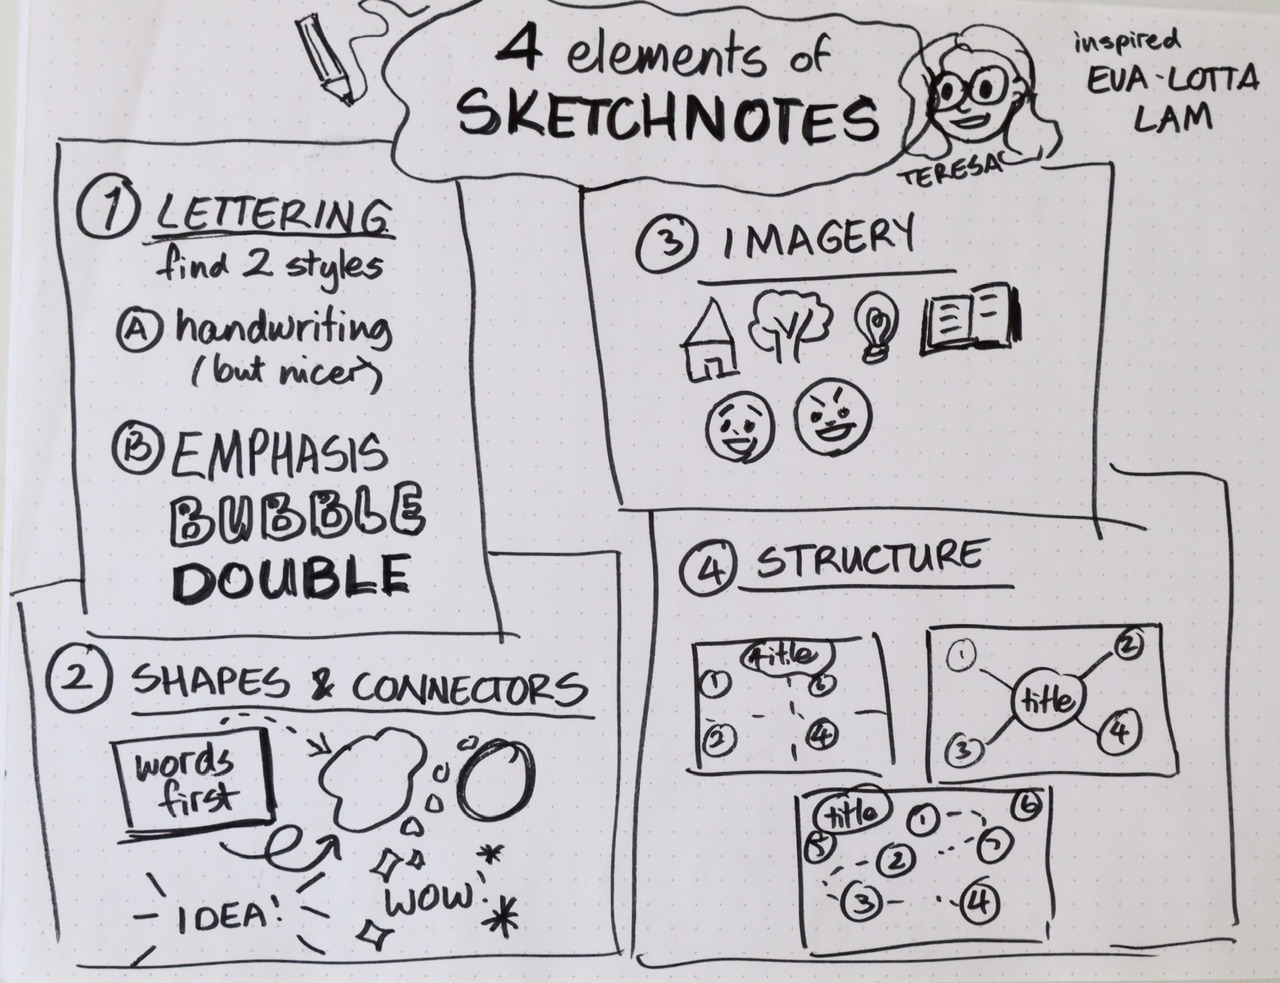 4 elements of
SKETCHNOTES
TERESA
inspired
EVA-LOTTA
LAM
1 LETTERING
find 2 styles
A handwriting
(but nicer)
B EMPHASIS
BUBBLE
DOUBLE
2 SHAPES & CONNECTORS
words
first
IDEA!
WOW!
3 IMAGERY
4 STRUCTURE
title
1
2
4
title
1
2
3
4
title
1
6
5
2
3
4